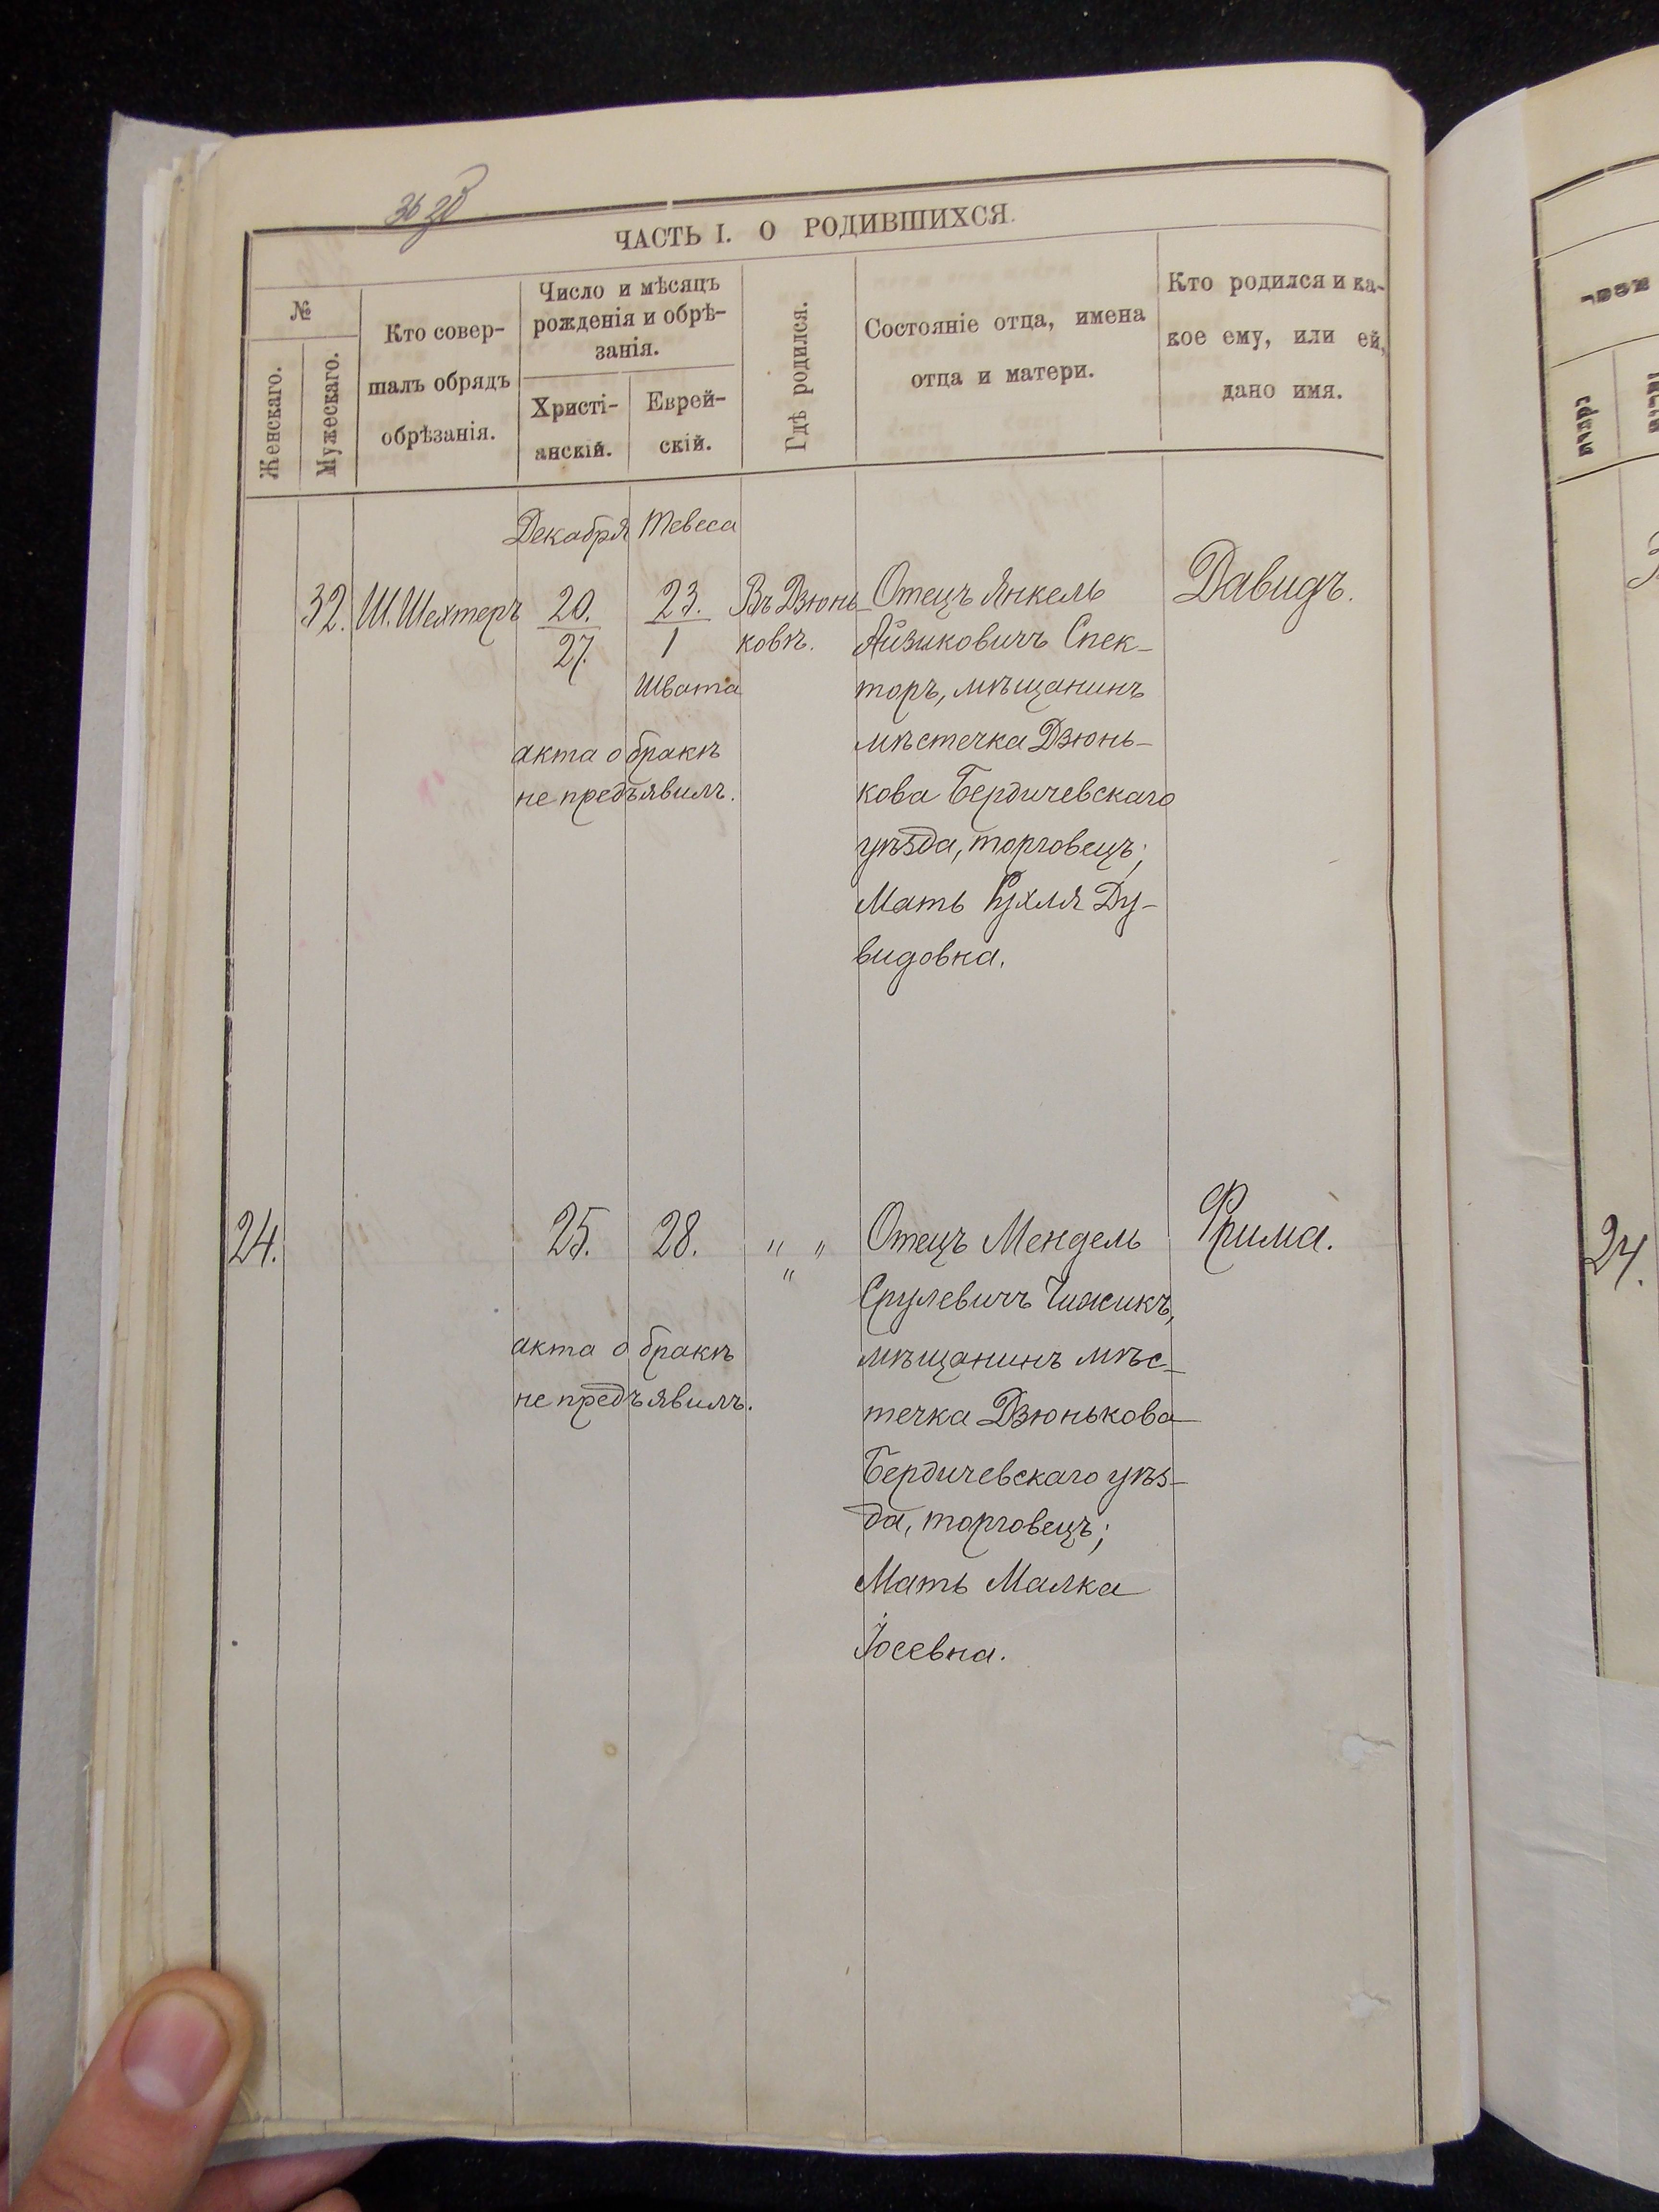 ЧАСТЬ I. О РОДИВШИХСЯ.
№
Женскаго.
Мужескаго.
Кто совер-
шалъ обрядъ
обрѣзанія.
Число и мѣсяцъ
рожденія и обрѣ-
занія.
Христі-
анскій.
Еврей-
скій.
Гдѣ родился.
Состояніе отца, имена
отца и матери.
Кто родился и ка-
кое ему, или ей,
дано имя.
Декабря Тевеса
32. Ш. Шехтеръ 20. 23. Въ Дзюнь-
27. 1 ковѣ.
Швата
акта о бракѣ
не предъявилъ.
Отецъ Янкель
Айзиковичъ Спек-
торъ, мѣщанинъ
мѣстечка Дзюнь-
кова Бердичевскаго
уѣзда, торговецъ;
Мать Рухля Ду-
видовна.
Давидъ.
24. 25. 28. " "
"
акта о бракѣ
не предъявилъ.
Отецъ Мендель
Срулевичъ Чижикъ,
мѣщанинъ мѣс-
течка Дзюнькова
Бердичевскаго уѣз-
да, торговецъ;
Мать Малка
Іосевна.
Фрима.
24.